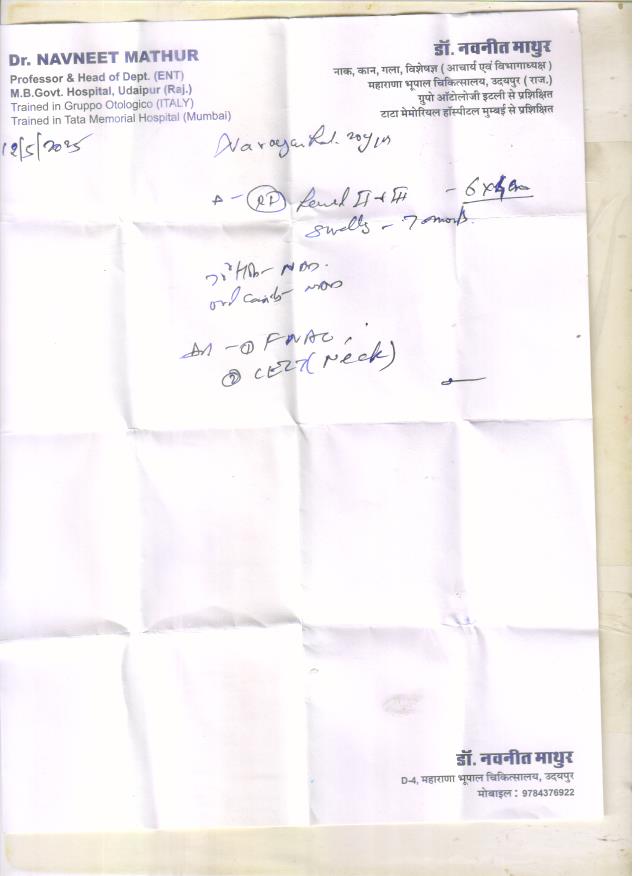 Dr. NAVNEET MATHUR
Professor & Head of Dept. (ENT)
M.B.Govt. Hospital, Udaipur (Raj.)
Trained in Gruppo Otologico (ITALY)
Trained in Tata Memorial Hospital (Mumbai)
डॉ. नवनीत माथुर
नाक, कान, गला, विशेषज्ञ ( आचार्य एवं विभागाध्यक्ष )
महाराणा भूपाल चिकित्सालय, उदयपुर ( राज.)
ग्रुपो ऑटोलोजी इटली से प्रशिक्षित
टाटा मेमोरियल हॉस्पीटल मुम्बई से प्रशिक्षित
12/5/2025
Narayan Lal. 20y/m
Level II + III - 6 x
- 7 month
NAD
NAD
- ① FNAC
② CECT (Neck)
डॉ. नवनीत माथुर
D-4, महाराणा भूपाल चिकित्सालय, उदयपुर
मोबाइल : 9784376922